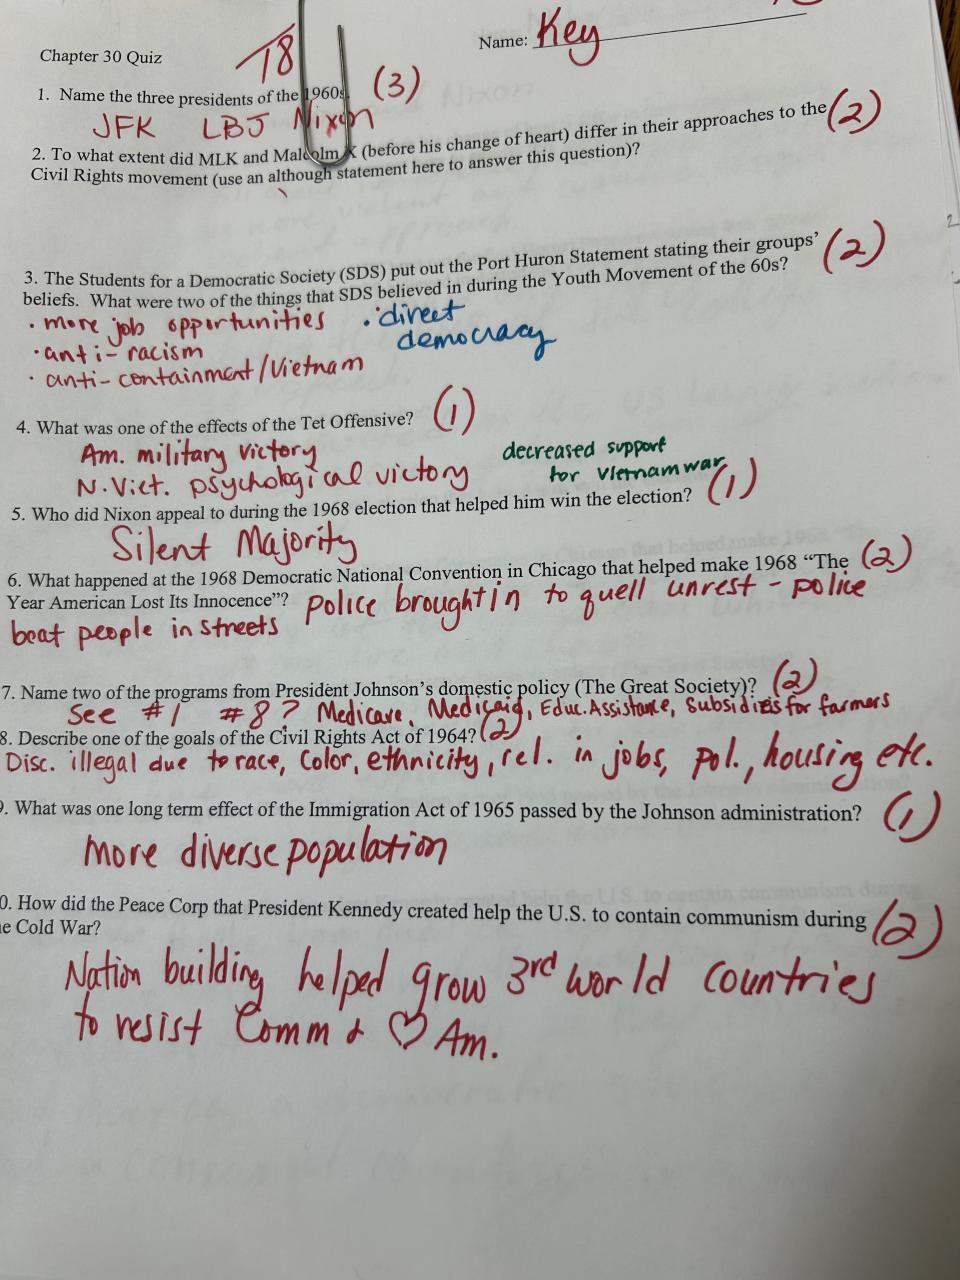 Chapter 30 Quiz
18
Name: Key
1. Name the three presidents of the 1960s. (3)
JFK LBJ Nixon
2. To what extent did MLK and Malcolm X (before his change of heart) differ in their approaches to the (2)
Civil Rights movement (use an although statement here to answer this question)?
3. The Students for a Democratic Society (SDS) put out the Port Huron Statement stating their groups' (2)
beliefs. What were two of the things that SDS believed in during the Youth Movement of the 60s?
• more job opportunities • direct
democracy
• anti-racism
• anti-containment/Vietnam
4. What was one of the effects of the Tet Offensive? (1)
Am. military victory decreased support
N.Viet. psychological victory for Vietnam war
5. Who did Nixon appeal to during the 1968 election that helped him win the election? (1)
Silent Majority
6. What happened at the 1968 Democratic National Convention in Chicago that helped make 1968 “The (2)
Year American Lost Its Innocence”? police brought in to quell unrest - police
beat people in streets
7. Name two of the programs from President Johnson's domestic policy (The Great Society)? (2)
See #1 #8? Medicare, Medicaid, Educ. Assistance, Subsidies for farmers
8. Describe one of the goals of the Civil Rights Act of 1964? (2)
Disc. illegal due to race, Color, ethnicity, rel. in jobs, pol., housing etc.
9. What was one long term effect of the Immigration Act of 1965 passed by the Johnson administration? (1)
More diverse population
0. How did the Peace Corp that President Kennedy created help the U.S. to contain communism during (2)
e Cold War?
Nation building helped grow 3rd world Countries
to resist Comm & ♡ Am.